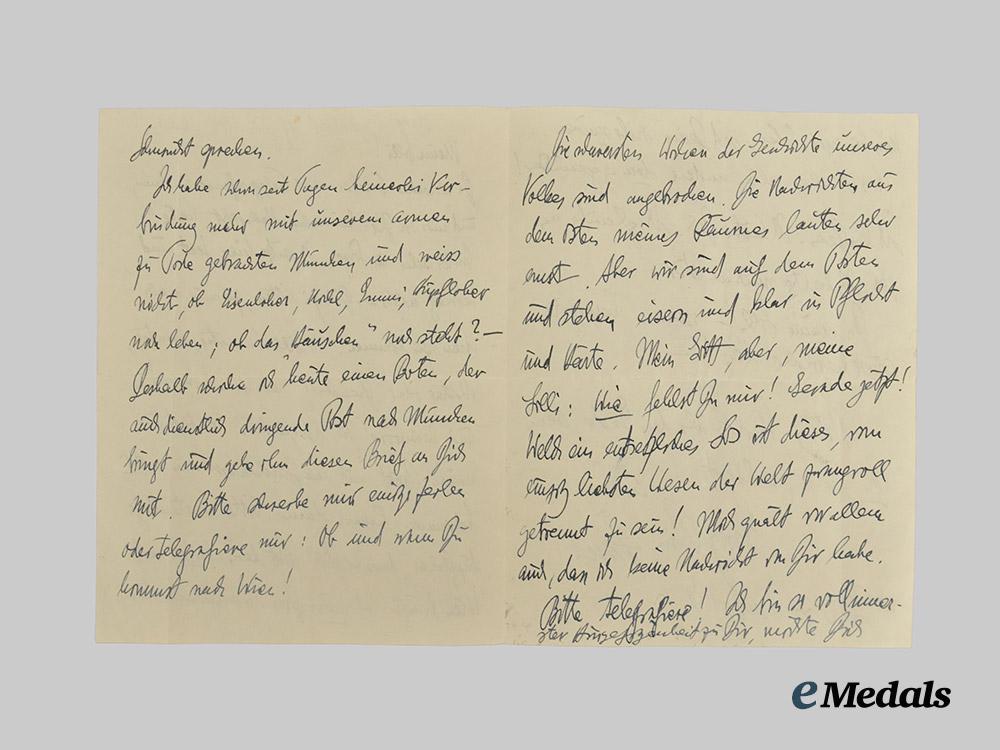 Sehnsucht sprechen.
Ich habe schon seit Tagen keinerlei Ver-
bindung mehr mit unserem armen
zu Tode gebrachten München und weiss
nicht, ob Eisenlober, Kohl, Emmi, Kupfloher
noch leben; ob das "Häuschen" noch steht? —
Deshalb schicke ich heute einen Boten, der
auch dienstlich dringende Post nach München
bringt und gebe ihm diesen Brief an Dich
mit. Bitte schreibe mir einige Zeilen
oder telegrafiere mir: Ob und wann Du
kommst nach Wien!
Die schwersten Wochen der Geschichte unseres
Volkes sind angebrochen. Die Nachrichten aus
dem Osten meines Raumes lauten sehr
ernst. Aber wir sind auf dem Posten
und stehen eisern und klar in Pflicht
und Härte. Mein Gott, aber, meine
Lilli: Wie fehlst Du mir! Gerade jetzt!
Welch ein entsetzliches Los ist dieses, vom
einzig liebsten Wesen der Welt grausvoll
getrennt zu sein! Mich quält vor allem
auch, dass ich keine Nachricht von Dir habe.
Bitte telegrafiere! Ich bin so voll inner-
ster Hingezogenheit zu Dir, möchte Dich
eMedals